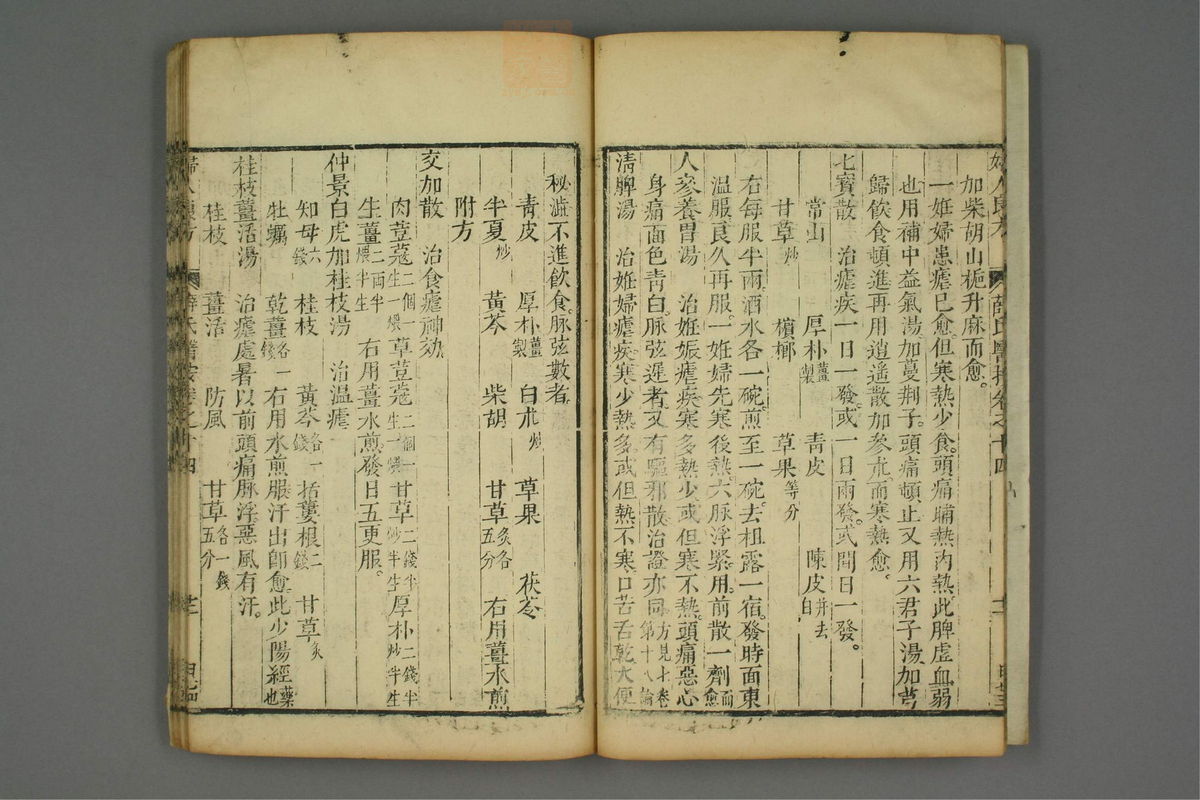 加柴胡山梔升麻而愈。
一妊婦患瘧已愈。但寒熱少食。頭痛晡熱內熱。此脾虛血弱
也用補中益氣湯加蔓荊子。頭痛頓止又用六君子湯加芎
歸飲食頓進再用逍遙散加參朮而寒熱愈。
七寶散　治瘧疾一日一發。或一日兩發。或間日一發。
常山　厚朴薑製　青皮　陳皮并去白
甘草炒　檳榔　草果等分
右每服半兩。酒水各一碗。煎至一碗。去柤露一宿。發時面東
溫服。良久再服。一妊婦先寒後熱。六脉浮緊。用前散一劑而愈
人參養胃湯　治妊娠瘧疾寒多熱少。或但寒不熱。頭痛惡心
身痛面色青白。脉弦遲者。又有驅邪散治證亦同。方見七卷第十八論
清脾湯　治妊婦瘧疾。寒少熱多。或但熱不寒。口苦舌乾大便
秘澁不進飲食。脉弦數者。
青皮　厚朴薑製　白朮炒　草果　茯苓
半夏炒　黃芩　柴胡　甘草炙各五分　右用薑水煎
附方
交加散　治食瘧神効
肉荳蔻二個一生一煨　草荳蔻二個一生一煨　甘草二錢半炒半生　厚朴二錢半炒半生
生薑二兩半煨半生　右用薑水煎。發日五更服。
仲景白虎加桂枝湯　治溫瘧
知母六錢　桂枝　黃芩各一錢　括蔞根二錢　甘草炙
牡蠣　乾薑各一錢　右用水煎服汗出卽愈。此少陽經藥也
桂枝薑活湯　治瘧處暑以前頭痛脉浮。惡風有汗。
桂枝　薑活　防風　甘草炙各一錢五分